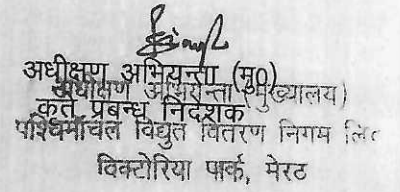 अधीक्षण अभियन्ता (मु0)
अधीक्षण अभियन्ता (मुख्यालय)
कृते प्रबन्ध निदेशक
पश्चिमांचल विद्युत वितरण निगम लि०
विक्टोरिया पार्क, मेरठ